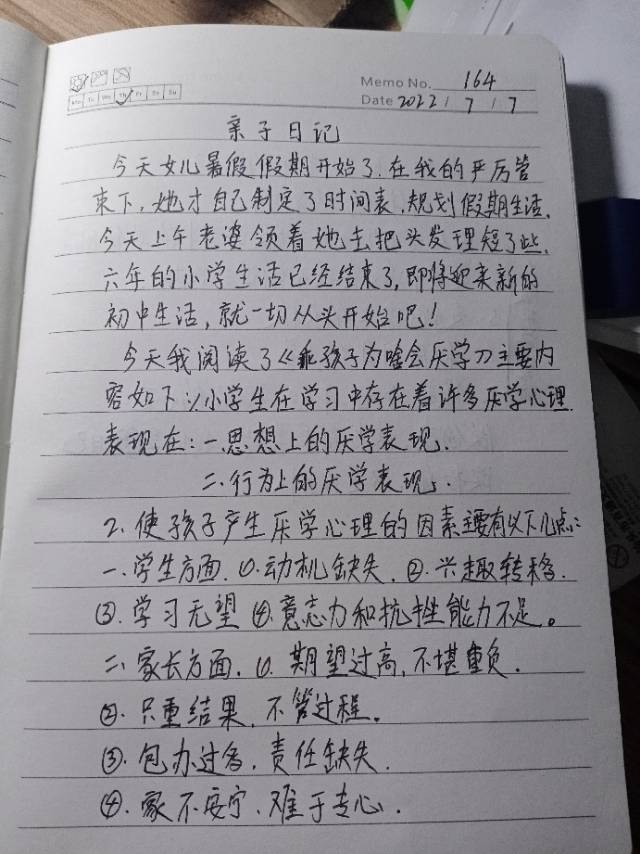 Mo Tu We Th Fr Sa Su
Memo No. 164
Date 2022 / 7 / 7
亲子日记
今天女儿暑假假期开始了.在我的严厉管
束下,她才自己制定了时间表,规划假期生活.
今天上午老婆领着她去把头发理短了些.
六年的小学生活已经结束了,即将迎来新的
初中生活,就一切从头开始吧!
今天我阅读了《乖孩子为啥会厌学》主要内
容如下:1/小学生在学习中存在着许多厌学心理.
表现在:一思想上的厌学表现.
二.行为上的厌学表现.
2.使孩子产生厌学心理的因素主要有以下几点:
一.学生方面.①.动机缺失.②.兴趣转移.
③.学习无望④.意志力和抗挫能力不足。
二.家长方面.①.期望过高,不堪重负.
②.只重结果,不管过程。
③.包办过多.责任缺失.
④.家不安宁.难于专心.